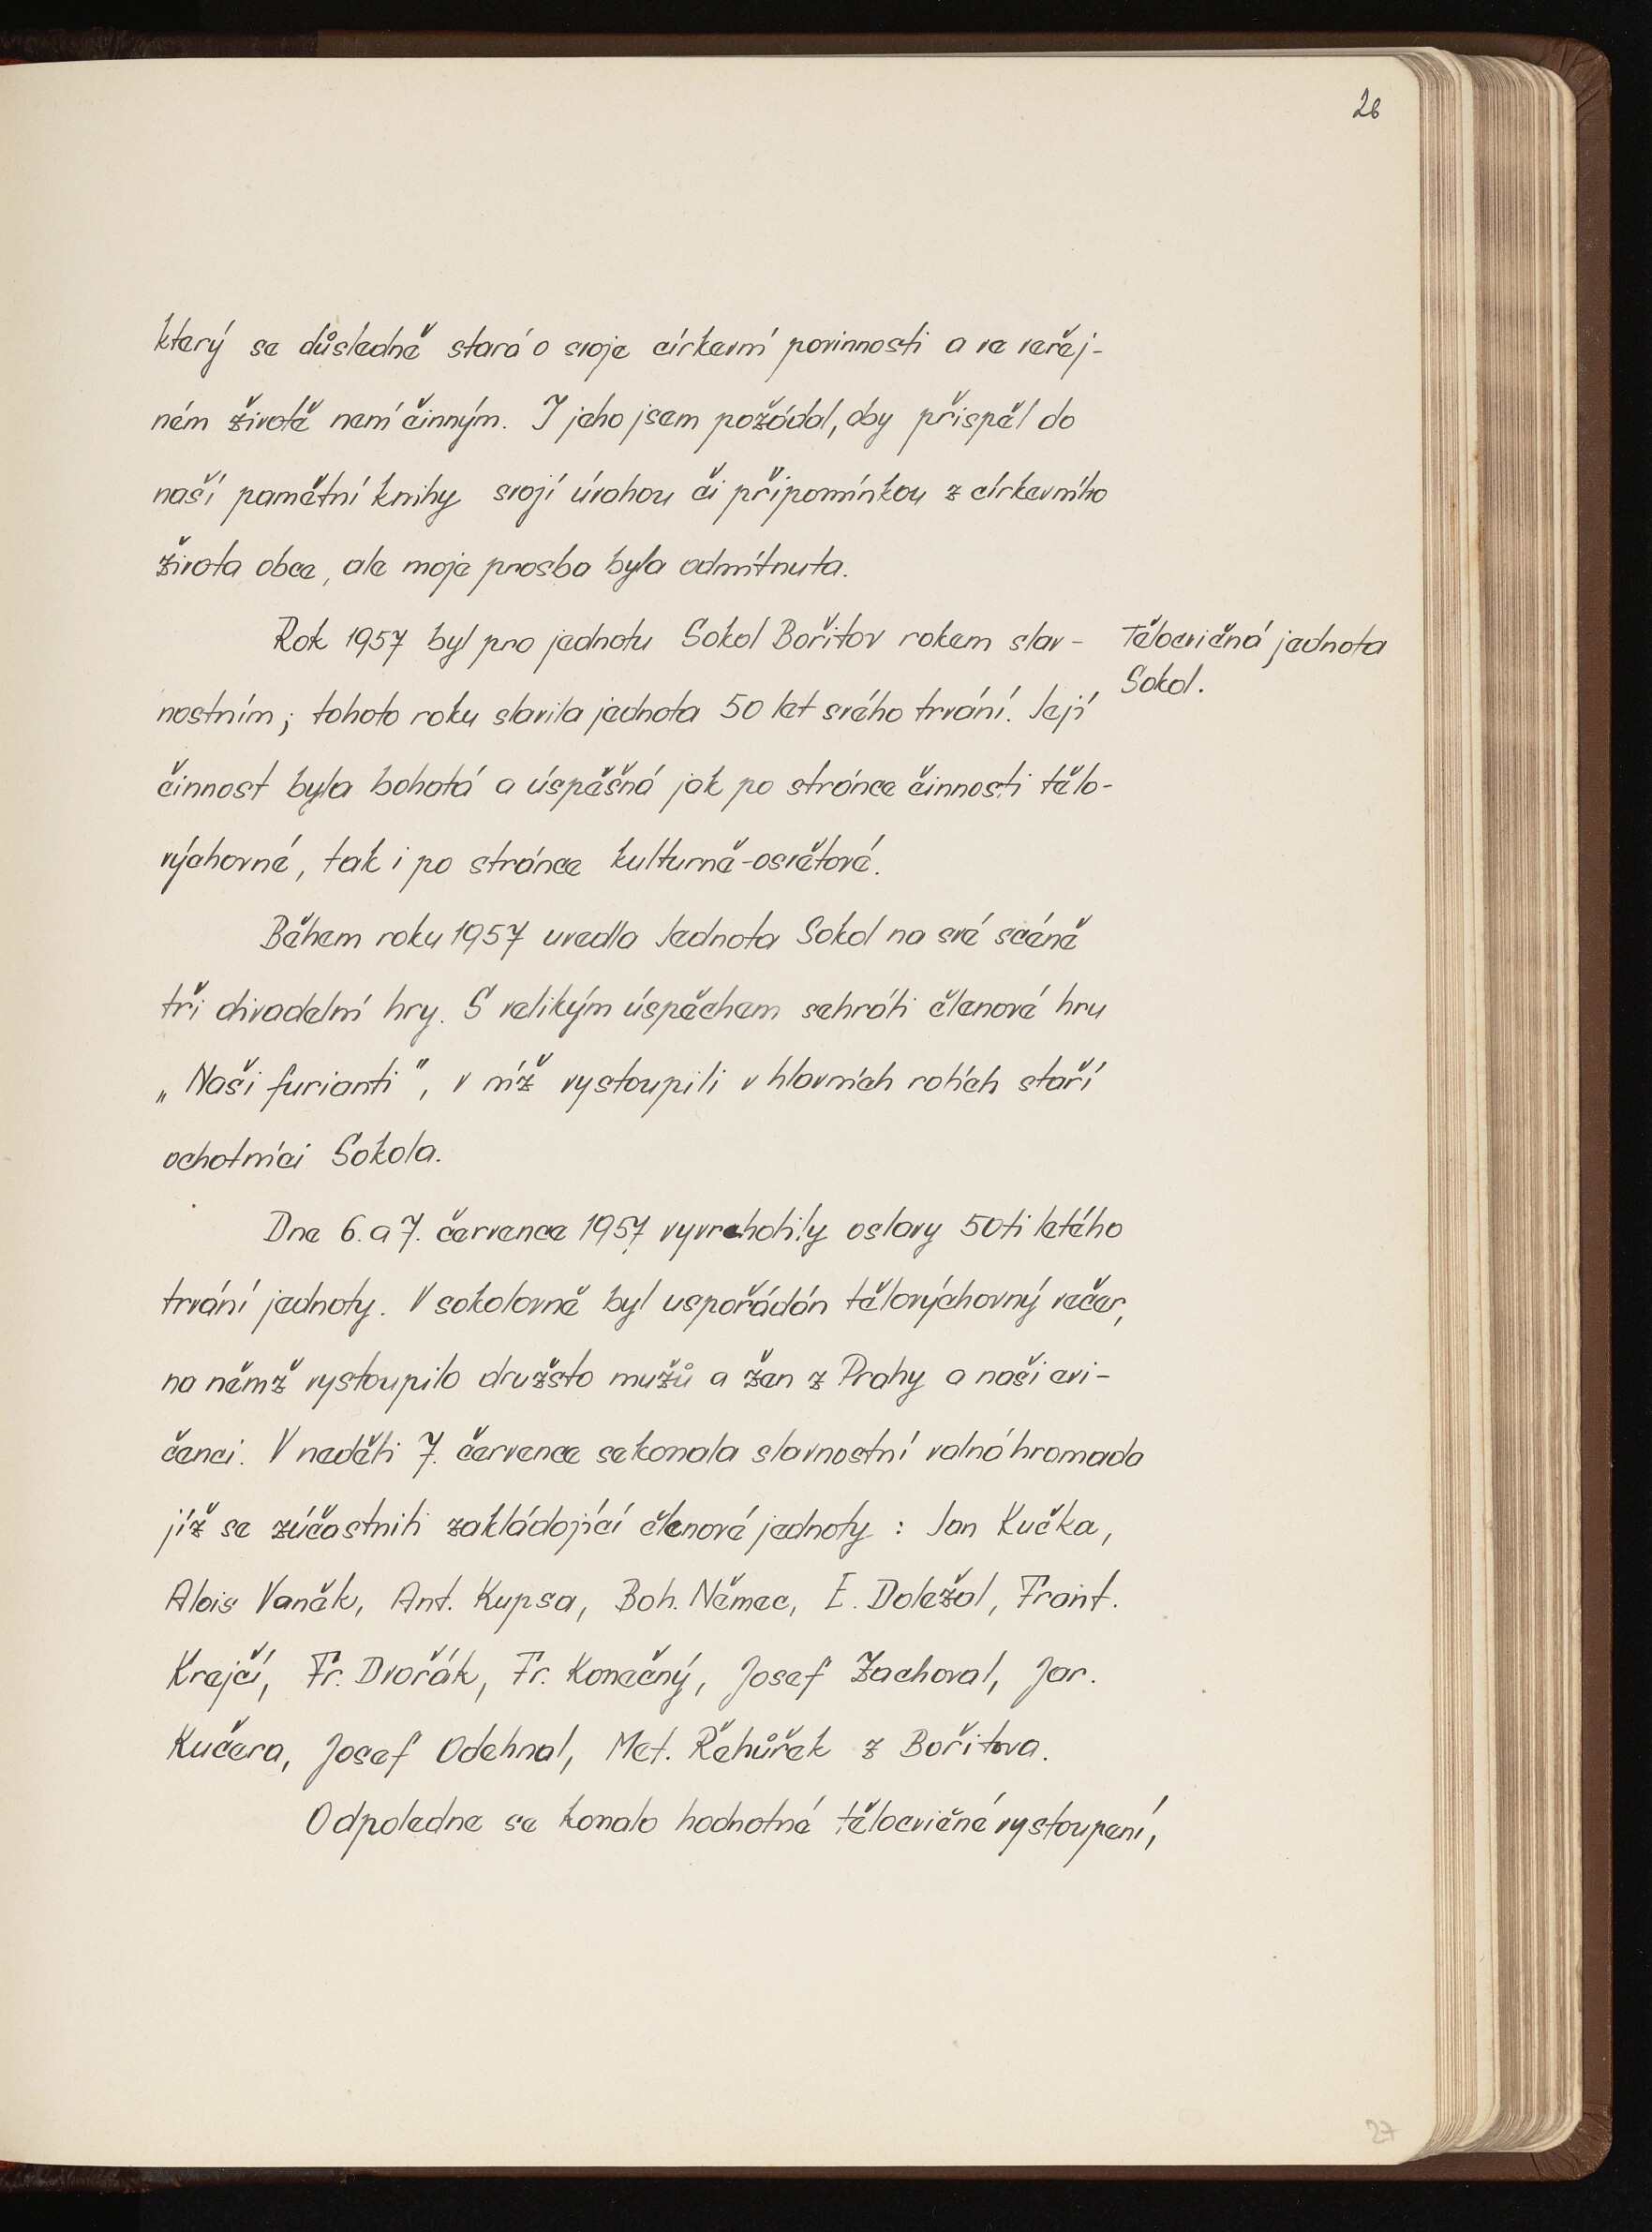 26
který se důsledně stará o svoje církevní povinnosti a ve veřej-
ném životě není činným. I jeho jsem požádal, aby přispěl do
naší pamětní knihy svojí úvahou či připomínkou z církevního
života obce, ale moje prosba byla odmítnuta.
Rok 1957 byl pro jednotu Sokol Bořitov rokem slav-
Tělocvičná jednota
Sokol.
nostním; tohoto roku slavila jednota 50 let svého trvání. Její
činnost byla bohatá a úspěšná jak po stránce činnosti tělo-
výchovné, tak i po stránce kulturně-osvětové.
Během roku 1957 uvedla Jednota Sokol na své scéně
tři divadelní hry. S velikým úspěchem sehráli členové hru
„Naši furianti", v níž vystoupili v hlavních rolích staří
ochotníci Sokola.
Dne 6. a 7. července 1957 vyvrcholily oslavy 50ti letého
trvání jednoty. V sokolovně byl uspořádán tělovýchovný večer,
na němž vystoupilo družsto mužů a žen z Prahy a naši cvi-
čenci. V neděli 7. července se konala slavnostní valná hromada
jíž se zúčastnili zakládající členové jednoty : Jan Kučka,
Alois Vaněk, Ant. Kupsa, Boh. Němec, E. Doležal, Frant.
Krejčí, Fr. Dvořák, Fr. Konečný, Josef Zachoval, Jar.
Kučera, Josef Odehnal, Met. Řehůřek z Bořitova.
Odpoledne se konalo hodnotné tělocvičné vystoupení,
27